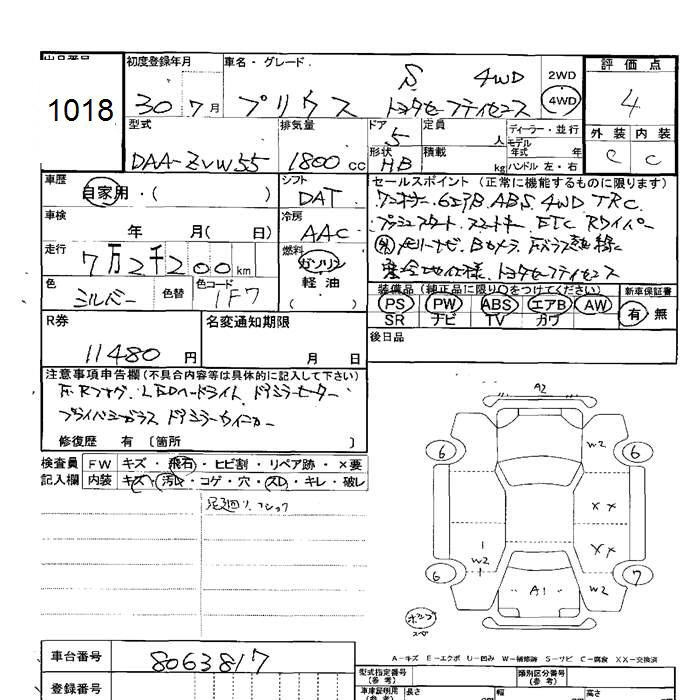 出品番号 1018
初度登録年月 30年 7月
車名・グレード プリウス S 4WD トヨタセーフティセンス
2WD 4WD
評価点 4
外装 内装
C C
型式 DAA-ZVW55
排気量 1800 cc
ドア 5
形状 HB
定員 人
積載 kg
ディーラー・並行
モデル年式 年
ハンドル 左・右
車歴 自家用・( )
車検 年 月( 日)
走行 7万2千200km
色 シルバー 色替 色コード 1F7
シフト DAT
冷房 AAC
燃料 ガソリン
軽油
( )
セールスポイント (正常に機能するものに限ります)
ワンオナー 6エアB ABS 4WD TRC
プッシュスタート スマートキー ETC Rワイパー
メモリーナビ Bカメラ Fガラス熱線
寒冷地仕様、トヨタセーフティセンス
装備品(純正品に限り○をつけてください)
PS PW ABS エアB AW
SR ナビ TV カワ
新車保証書
有 無
後日品
R券 11480 円
名変通知期限 月 日
注意事項申告欄(不具合内容等は具体的に記入して下さい)
F.Rフォグ、LEDヘッドライト、ドアミラーヒーター
プライバシーガラス ドアミラーウインカー
修復歴 有 〔箇所 〕
検査員 FW キズ・飛石・ヒビ割・リペア跡・×要
記入欄 内装 キズ・汚れ・コゲ・穴・スレ・キレ・破レ
足廻り、
A2
6 W2 6
XX
1 XX
W2
1
6 A1 W2 7
A-キズ E-エクボ U-凹み W-補修跡 S-サビ C-腐食 XX-交換済
車台番号 8063817
登録番号
型式指定番号(参考)
類別区分番号(参考)
車庫証明用(参考) 長さ 幅 高さ